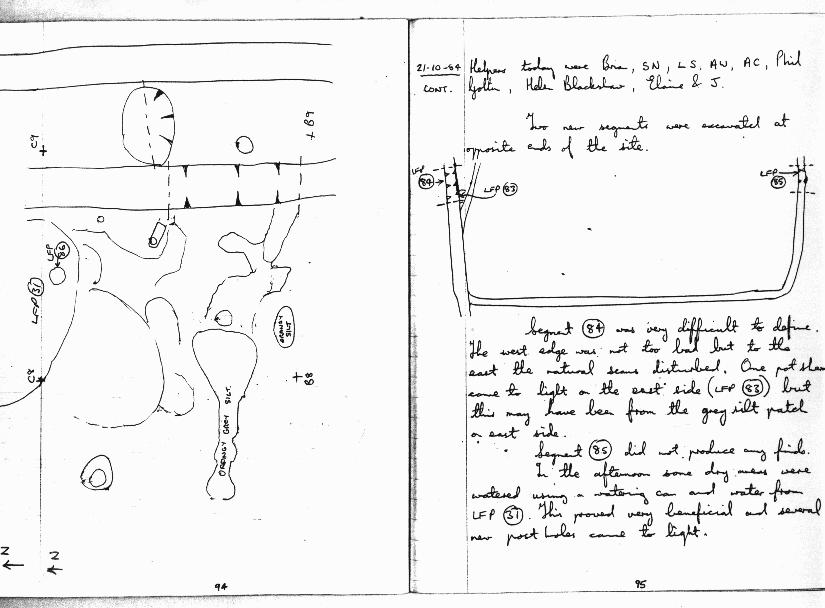 C9
B9
LFP 86
LFP 31
C8
B8
ORANGY SILT
ORANGY GREY SILT
N
N
94
21-10-84
CONT.
Helpers today were Brian, SN, LS, AW, AC, Phil
, Helen Blackshaw, Elaine & J.
Two new segments were excavated at
opposite ends of the site.
LFP 84
LFP 83
LFP 85
Segment 84 was very difficult to define.
The west edge was not too bad but to the
east the natural seems disturbed. One pot sher
came to light on the east side (LFP 83) but
this may have been from the grey silt patch
on east side.
Segment 85 did not produce any finds.
In the afternoon some dry areas were
watered using a watering can and water from
LFP 31. This proved very beneficial and several
new post holes came to light.
95